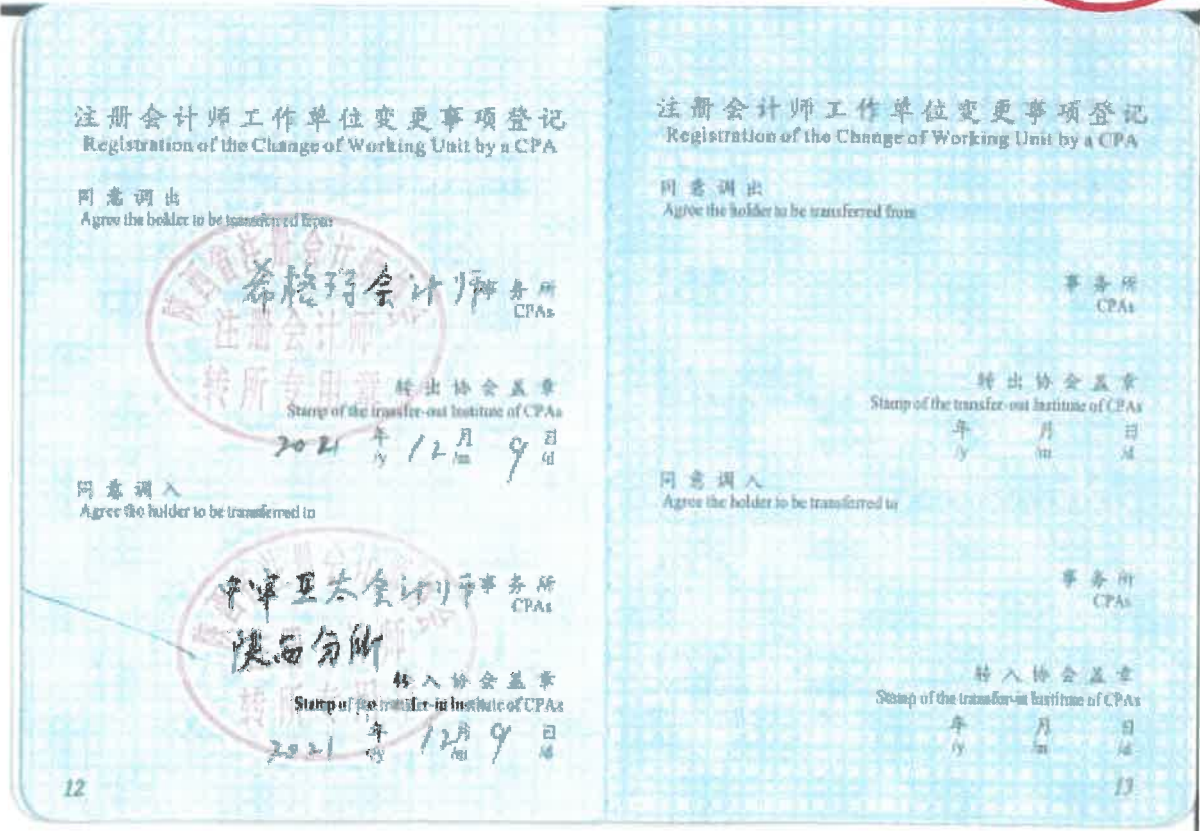 注册会计师工作单位变更事项登记
Registration of the Change of Working Unit by a CPA
同意调出
Agree the holder to be transferred from
希格玛会计师事务所
CPAs
陕西省注册会计师协会
注册会计师
转所专用章
转出协会盖章
Stamp of the transfer-out Institute of CPAs
2021 年 12 月 9 日
/y /m /d
同意调入
Agree the holder to be transferred to
中审亚太会计师事务所
CPAs
陕西分所
转所专用
转入协会盖章
Stamp of the transfer-in Institute of CPAs
2021 年 12 月 9 日
/y /m /d
12
注册会计师工作单位变更事项登记
Registration of the Change of Working Unit by a CPA
同意调出
Agree the holder to be transferred from
事务所
CPAs
转出协会盖章
Stamp of the transfer-out Institute of CPAs
年 月 日
/y /m /d
同意调入
Agree the holder to be transferred to
事务所
CPAs
转入协会盖章
Stamp of the transfer-in Institute of CPAs
年 月 日
/y /m /d
13